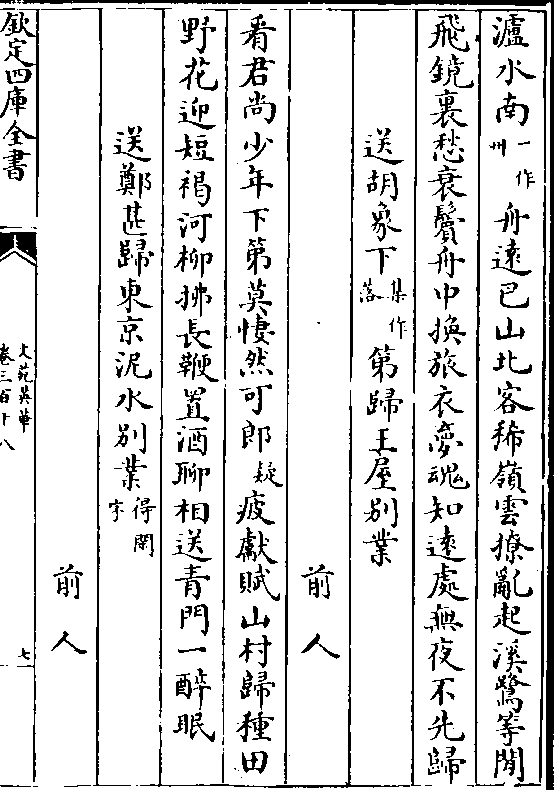 瀘水南一作州舟遠巴山北客稀嶺雲撩亂起溪鷺等閒
飛鏡裏愁衰鬢舟中換旅衣夢魂知遠處無夜不先歸
送胡象下集作落第歸王屋別業
前人
看君尚少年下第莫悽然可郎疑疲獻賦山村歸種田
野花迎短褐河柳拂長鞭置酒聊相送青門一醉眠
送鄭甚歸東京泥水別業得閒字
前人
欽定四庫全書
文苑英華
卷三百十八
七